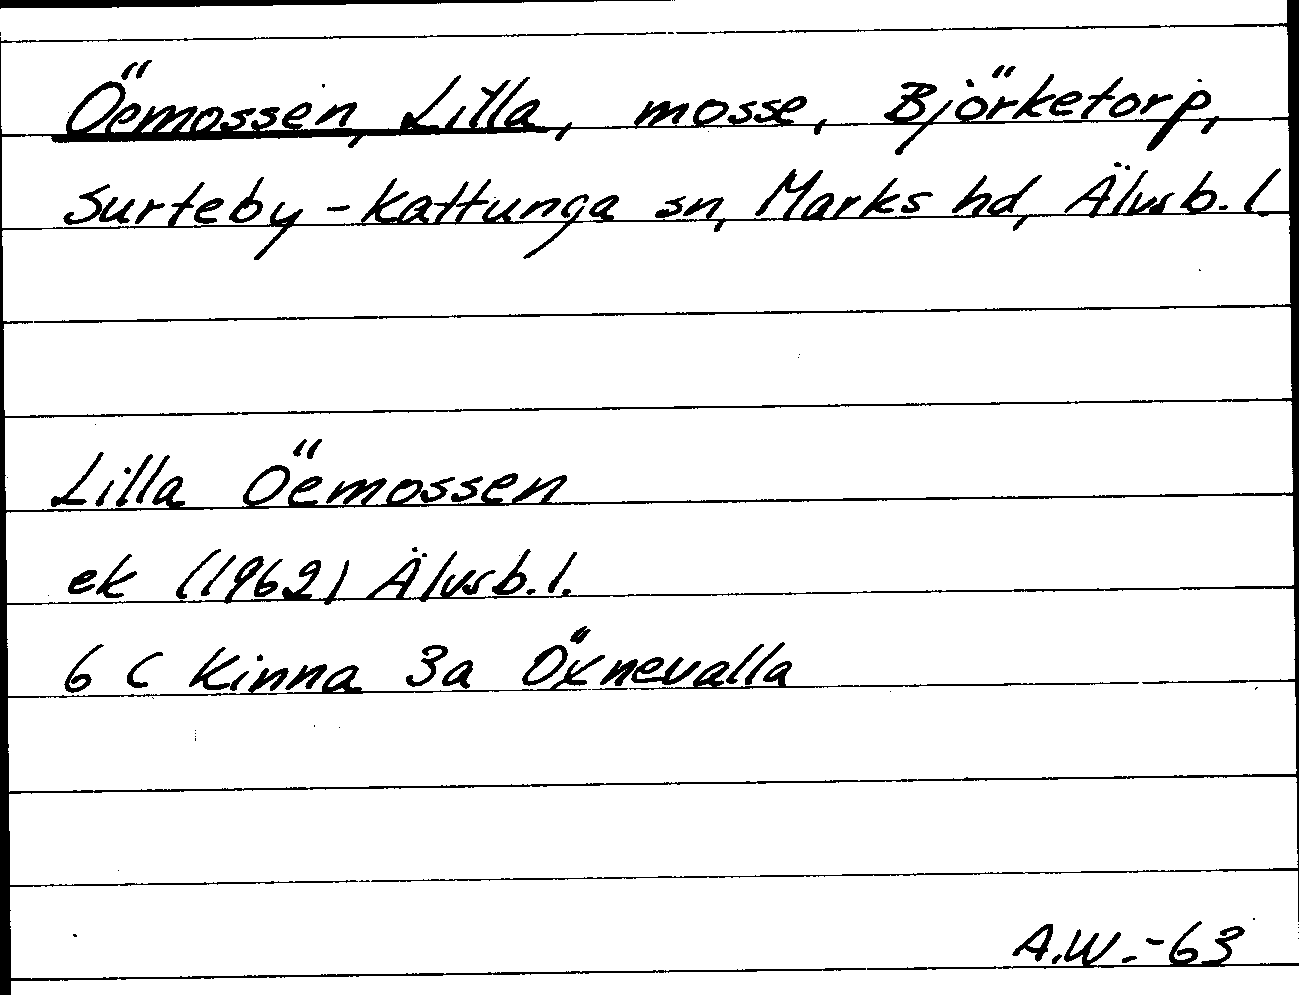 Öemossen, Lilla, mosse, Björketorp,
Surteby-Kattunga sn, Marks hd, Älvsb. l.
Lilla Öemossen
ek (1962) Älvsb. l.
6 C Kinna 3a Öxnevalla
A.W.-63